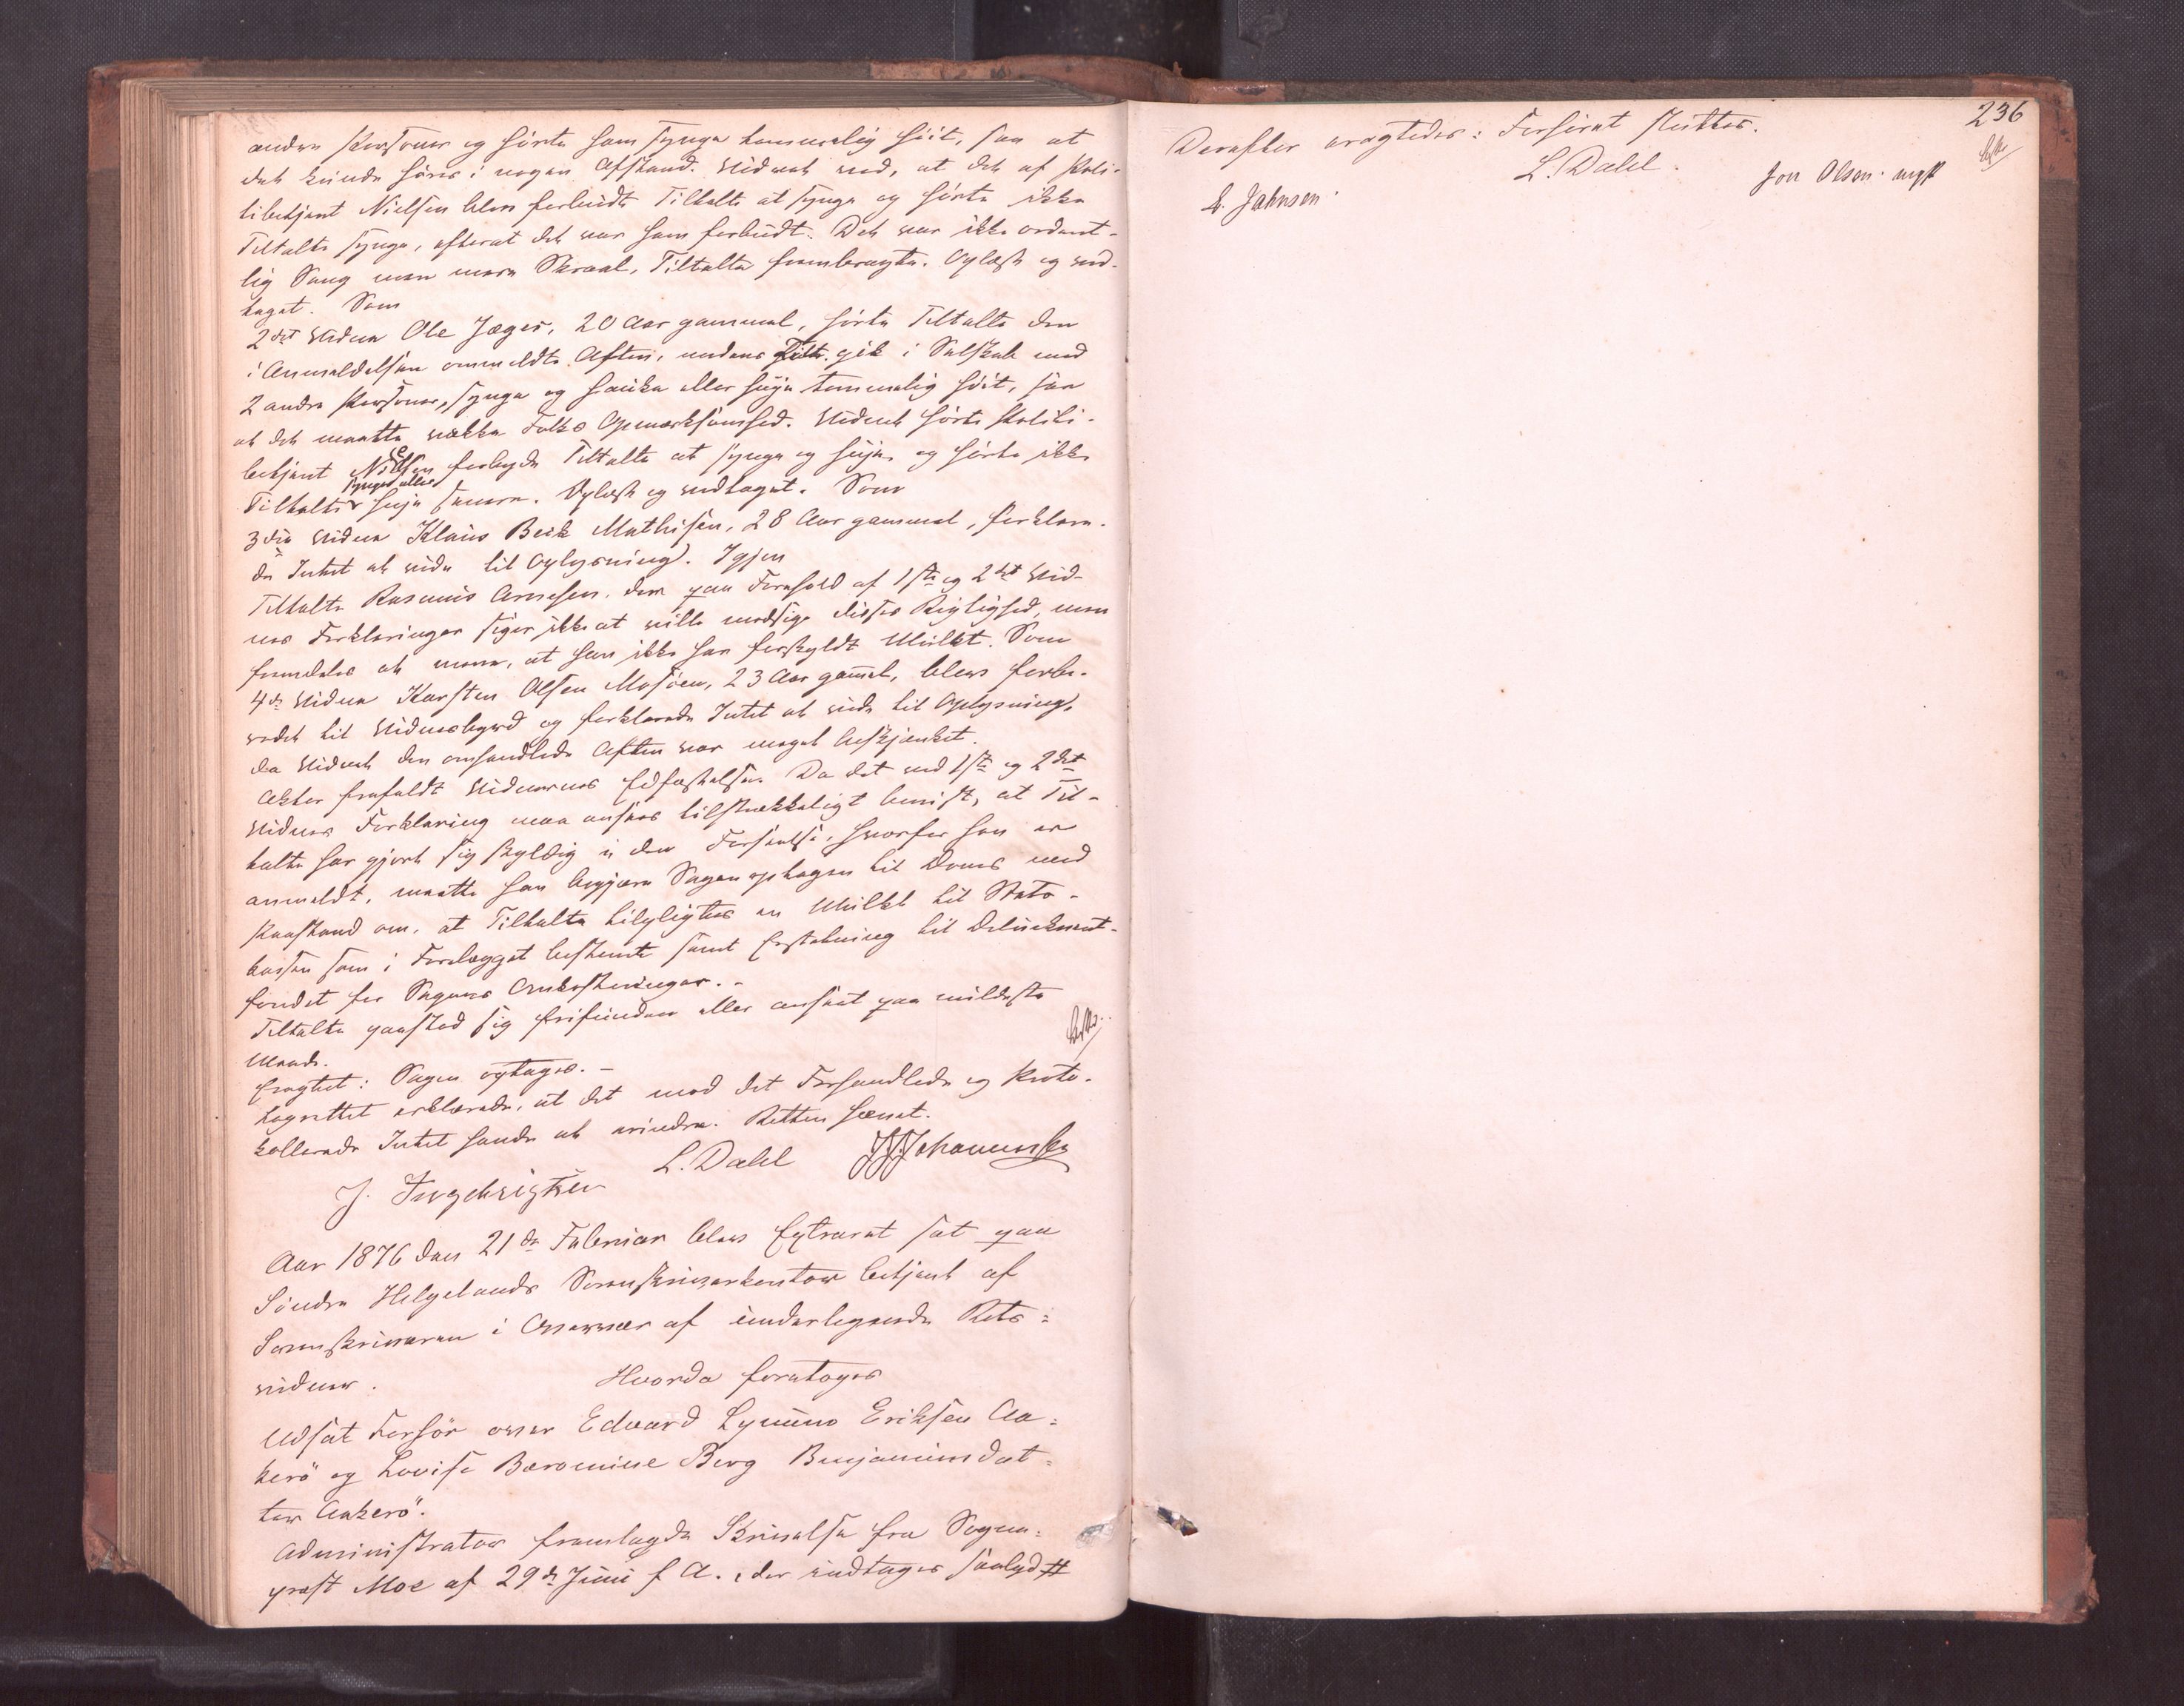 anden Personer og hørte ham synge temmelig høit, saa at
det kunde høres i nogen Afstand. Vidnet ved, at det af Poli-
tibetjent Nielsen blev forbudt Tiltalte at synge og hørte ikke
Tiltalte synge, efterat det var ham forbudt. Det var ikke ordent-
lig Sang men mere Skraal, Tiltalte frembragte. Oplæst og ved-
taget. Som
2det Vidne Ole Jæger, 20 Aar gammel, hørte Tiltalte den
i Anmeldelsen ommeldte Aften, medens Tilt. gik i Selskab med
2 andre Personer, synge og hauke eller huje temmelig høit, saa
at det maatte vække Folks Opmærksomhed. Vidnet hørte Politi-
betjent Nielsen forbyde Tiltalte at synge og huje og hørte ikke
Tiltalte synge eller huje senere. Oplæst og vedtaget. Som
3die Vidne Klaus Beck Mathisen, 28 Aar gammel, forklare-
de Intet at vide til Oplysning. Igjen
Tiltalte Rasmus Arnesen, der paa Forehold af 1ste og 2det Vid-
nes Forklaringer siger ikke at ville modsige disses Rigtighed, men
fremdeles at mene, at han ikke har forskyldt Mulkt. Som
4de Vidne Karsten Olsen Mosøen, 23 Aar gaml, blev forbe-
redt til Vidnesbyrd og forklarede Intet at vide til Oplysning,
da Vidnet den omhandlede Aften var meget beskjænket.
Aktor frafaldt Vidnernes Edfæstelse. Da det ved 1ste og 2det
Vidnes Forklaring maa ansees tilstrækkeligt bevist, at Til-
talte har gjort sig skyldig i den Forseelse, hvorfor han er
anmeldt, maatte han begjære Sagen optagen til Doms med
Paastand om, at Tiltalte tilpligtes en Mulkt til Stats-
kassen som i Forelægget bestemt samt Erstatning til Delinkvent-
fondet for Sagens Omkostninger. -
Tiltalte paastod sig frifunden eller anseet paa mildeste
Maade.
Eragtet: Sagen optages. -
Lagrettet erklærede, at det mod det Forhandlede og Proto-
kollerede Intet havde at erindre. Retten hævet.
L. Dahl
J. Ingebrigtsen
Aar 1876 den 21de Februar blev Extraret sat paa
Söndre Helgelands Sorenskriverkontor betjent af
Sorenskriveren i Overvær af underlegnede Rets=
vidner.
Hvorda foretoges
Udsat Forhör over Edvard Lynum Eriksen Aa=
kerö og Lovise Beromine Berg Benjaminsdat=
ter Aakerö.
Administrator fremlagde Skrivelse fra Sogne=
præst Moe af 29de Juni f A., der indtages saalyd #
236
Derefter eragtedes: Forhöret sluttes.
L. Dahl.
Jon Olsen
Jahnsen